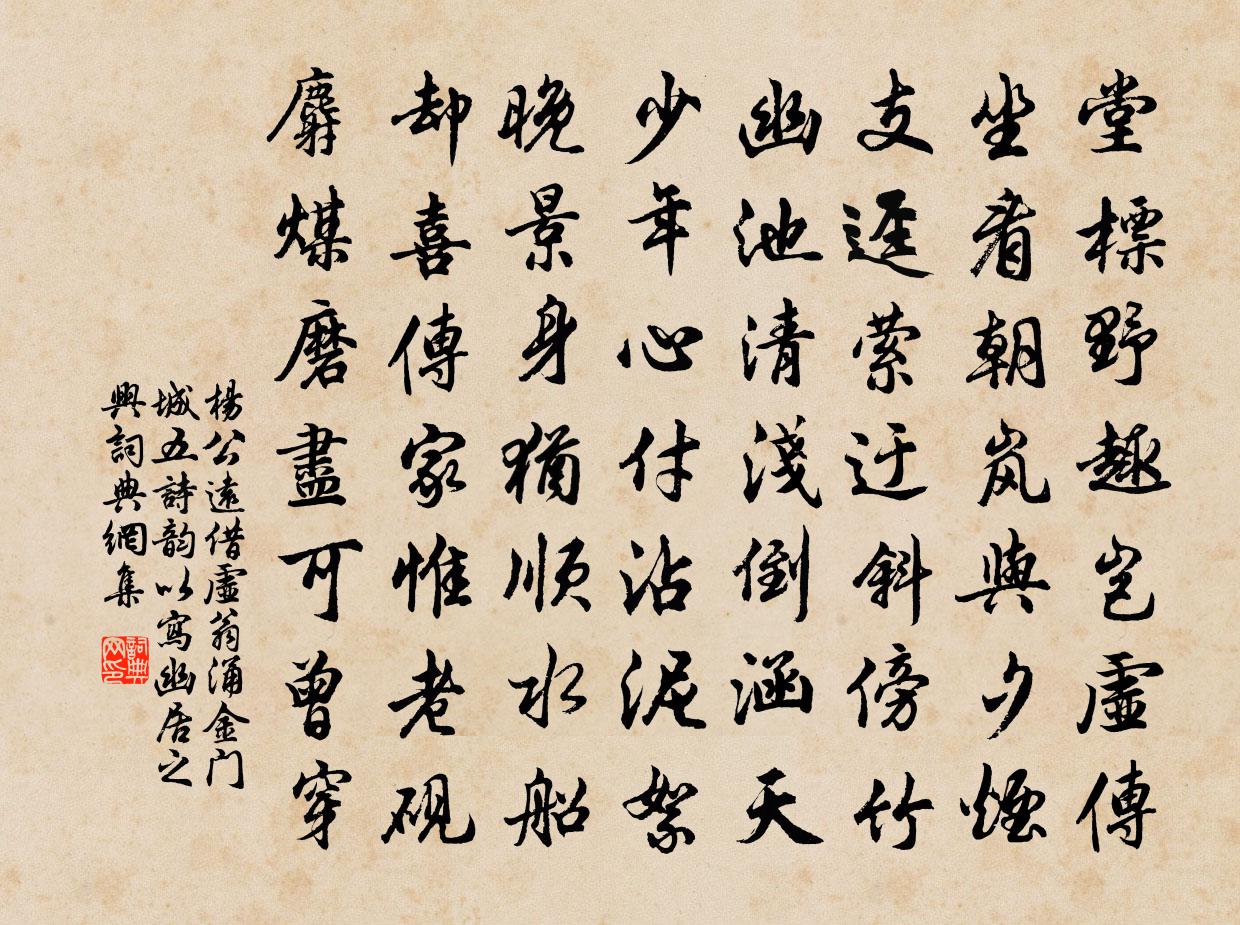 堂標野趣豈虛傳
坐看朝岚與夕煙
支逕縈迂斜傍竹
幽池清淺倒涵天
少年心付沾泥絮
晚景身猶順水船
却喜傳家惟老硯
麝煤磨盡可曾穿
楊公遠借虛翁涌金门
城五詩韵以寫幽居之
興詞典網集
詞典网印